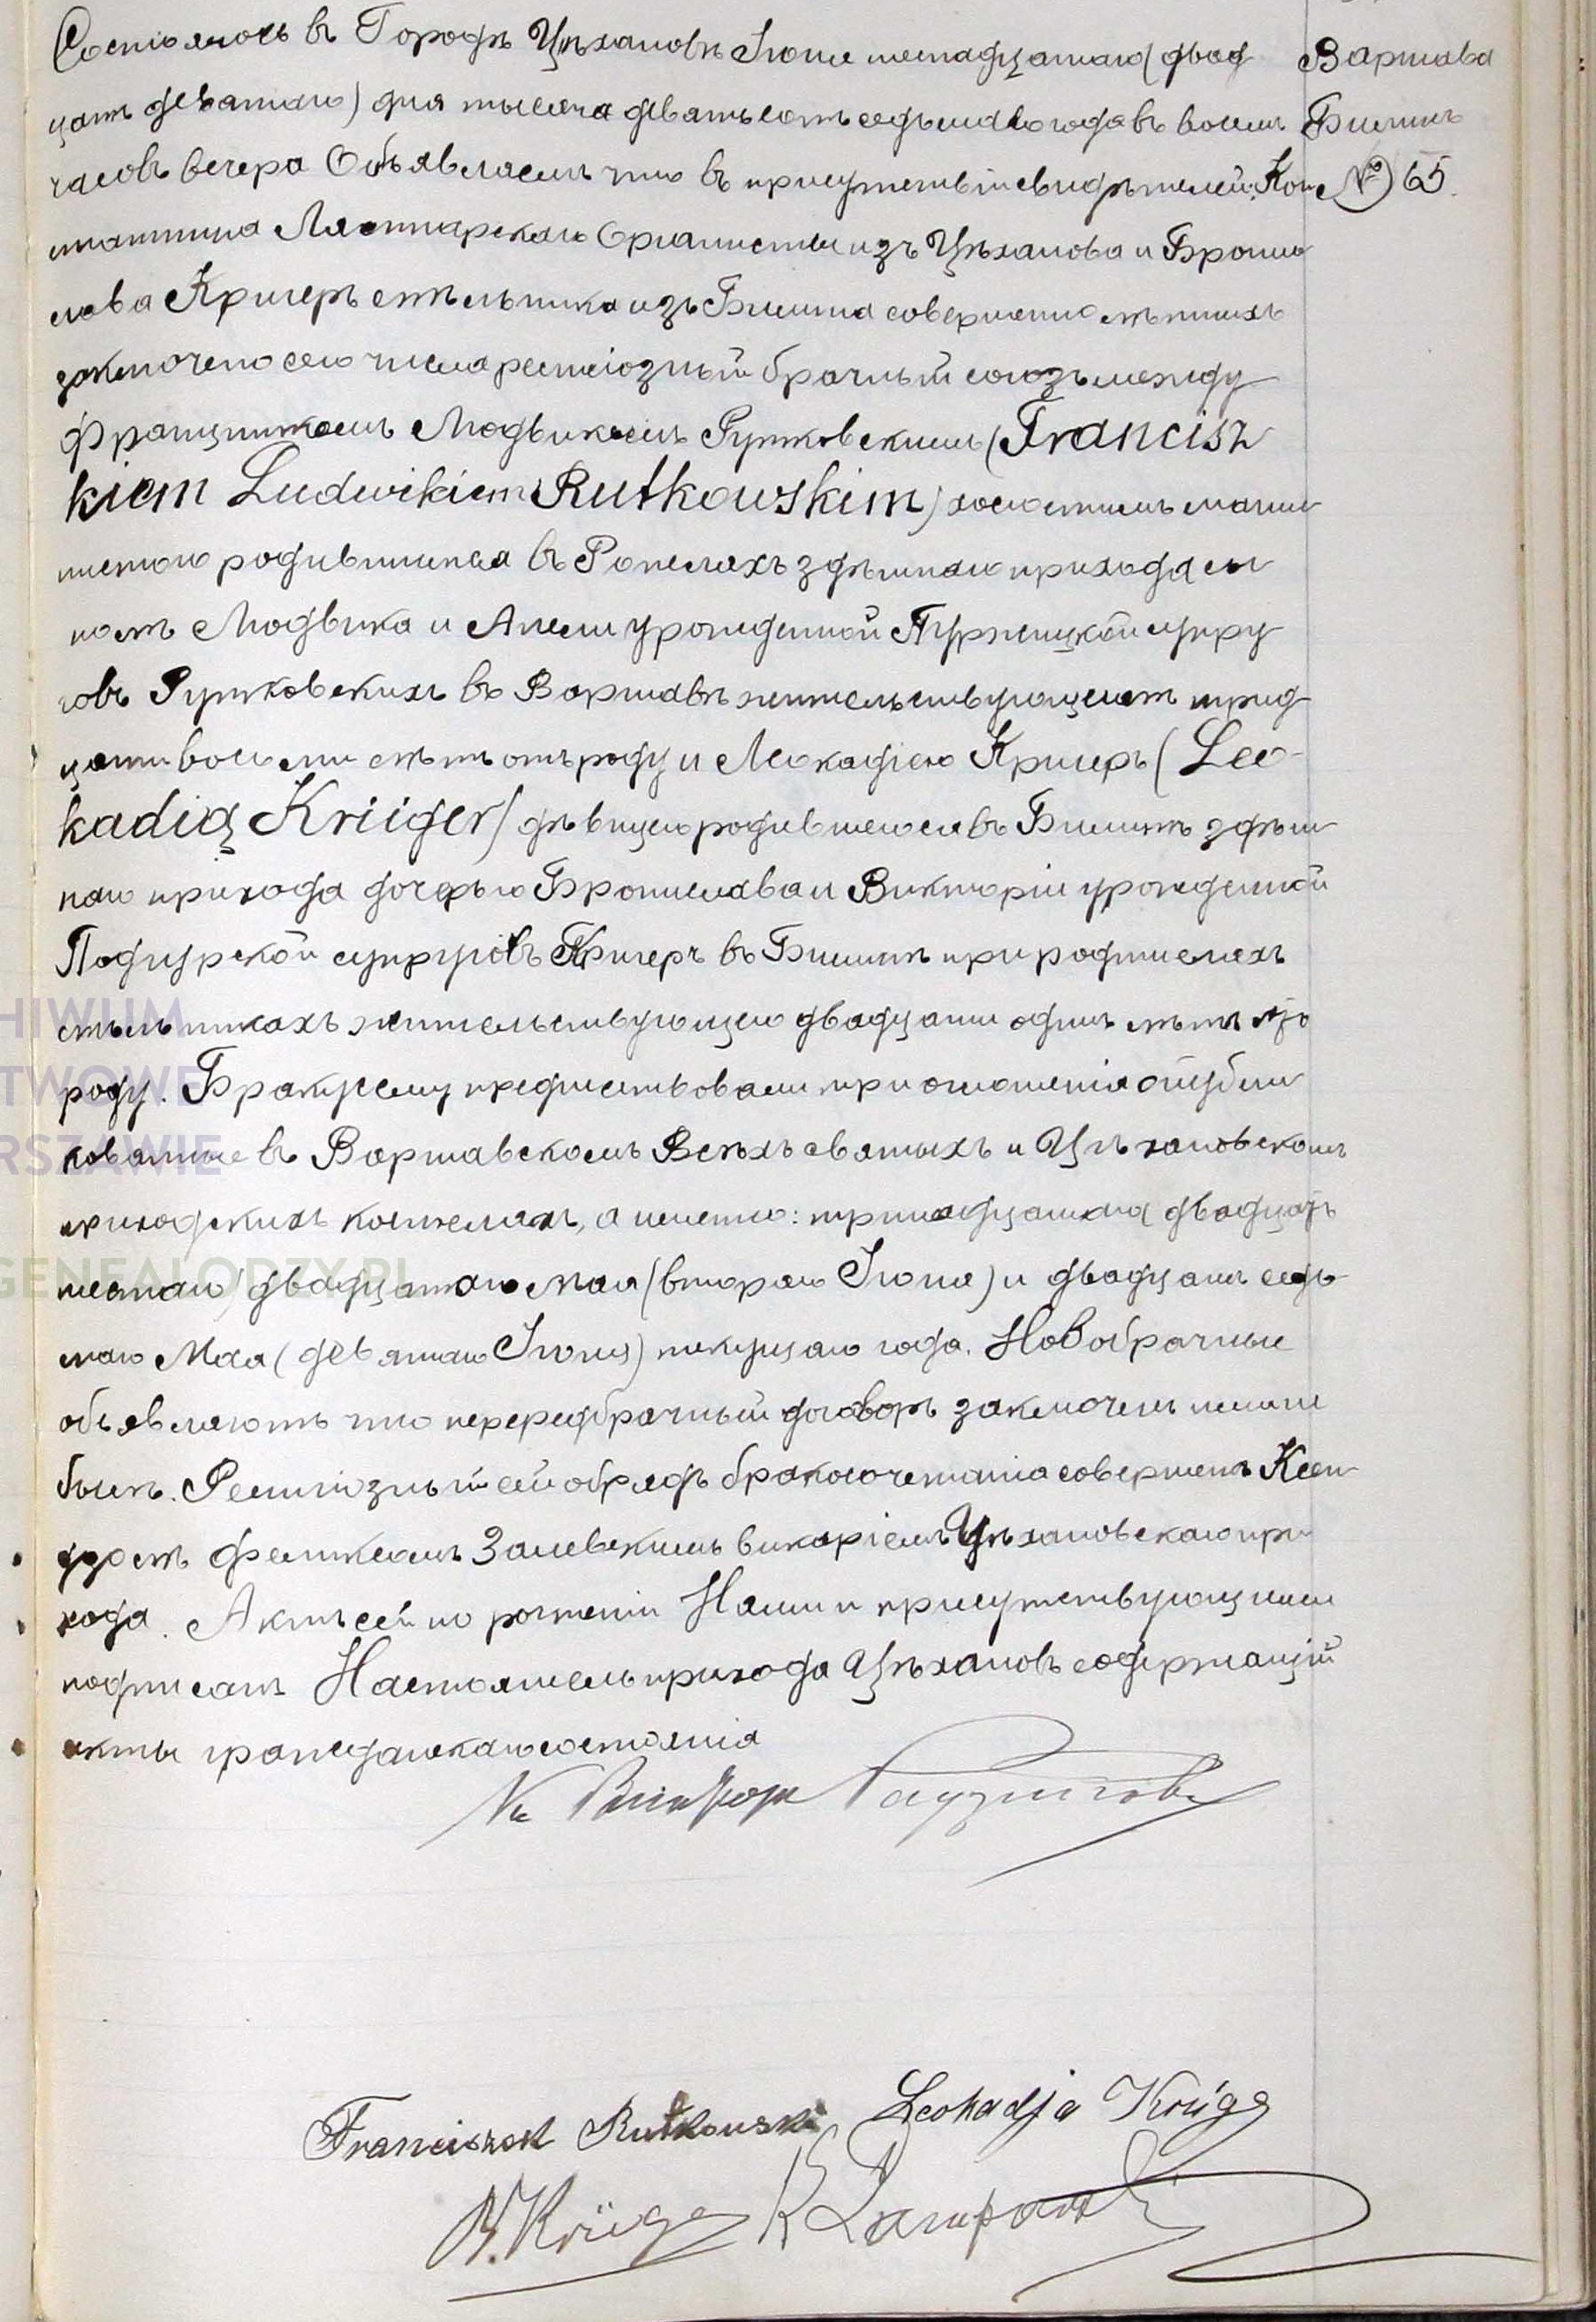 Состоялось въ Городѣ Цѣхановѣ Іюня шестнадцатаго (двад
цать девятаго) дня тысяча девятьсотъ седьмаго года въ восемь
часовъ вечера Объявляемъ что въ присутствіи свидѣтелей: Кон
стантина Органисты изъ Цѣханова и Брони
слава Кригеръ изъ совершеннолѣтнихъ
заключено сего числа религіозный брачный союзъ между
Францишкомъ Людвикомъ Рутковскимъ (Francisz
kiem Ludwikiem Rutkowskim) холостымъ маши
нистою родившимся въ здѣшнаго прихода сы
номъ Людвика и Анели урожденной супру
говъ Рутковскихъ въ Варшавѣ жительствующимъ трид
цати восьми лѣтъ отъ роду и Леокадіею Кригеръ (Leo
kadią Krüger) дѣвицею родившеюся въ здѣш
наго прихода дочерью Бронислава и Викторіи урожденной
Подгурской супруговъ Кригеръ въ при родителяхъ
жительствующею двадцати одинъ лѣтъ
роду. Браку сему предшествовали при оглашенія опубли
кованные въ Варшавскомъ Всѣхъ святыхъ и Цѣхановскомъ
приходскихъ костелахъ, а именно: тринадцатаго (двадцать
шестаго) двадцатаго Мая (втораго Іюня) и двадцать седь
маго Мая (девятаго Іюня) текущаго года. Новобрачные
объявляютъ что передбрачный договоръ заключенъ ними не
былъ. Религіозный сей обрядъ бракосочетанія совершенъ Ксен
дзомъ Феликсомъ Залевскимъ викаріемъ Цѣхановскаго при
хода. Актъ сей по Нами и присутствующими
подписанъ Настоятель прихода Цѣхановъ содержащій
акты гражданскаго состоянія
Franciszek Rutkowski Leokadja Krüge
B. Krüge K
Варшава
№ 65.